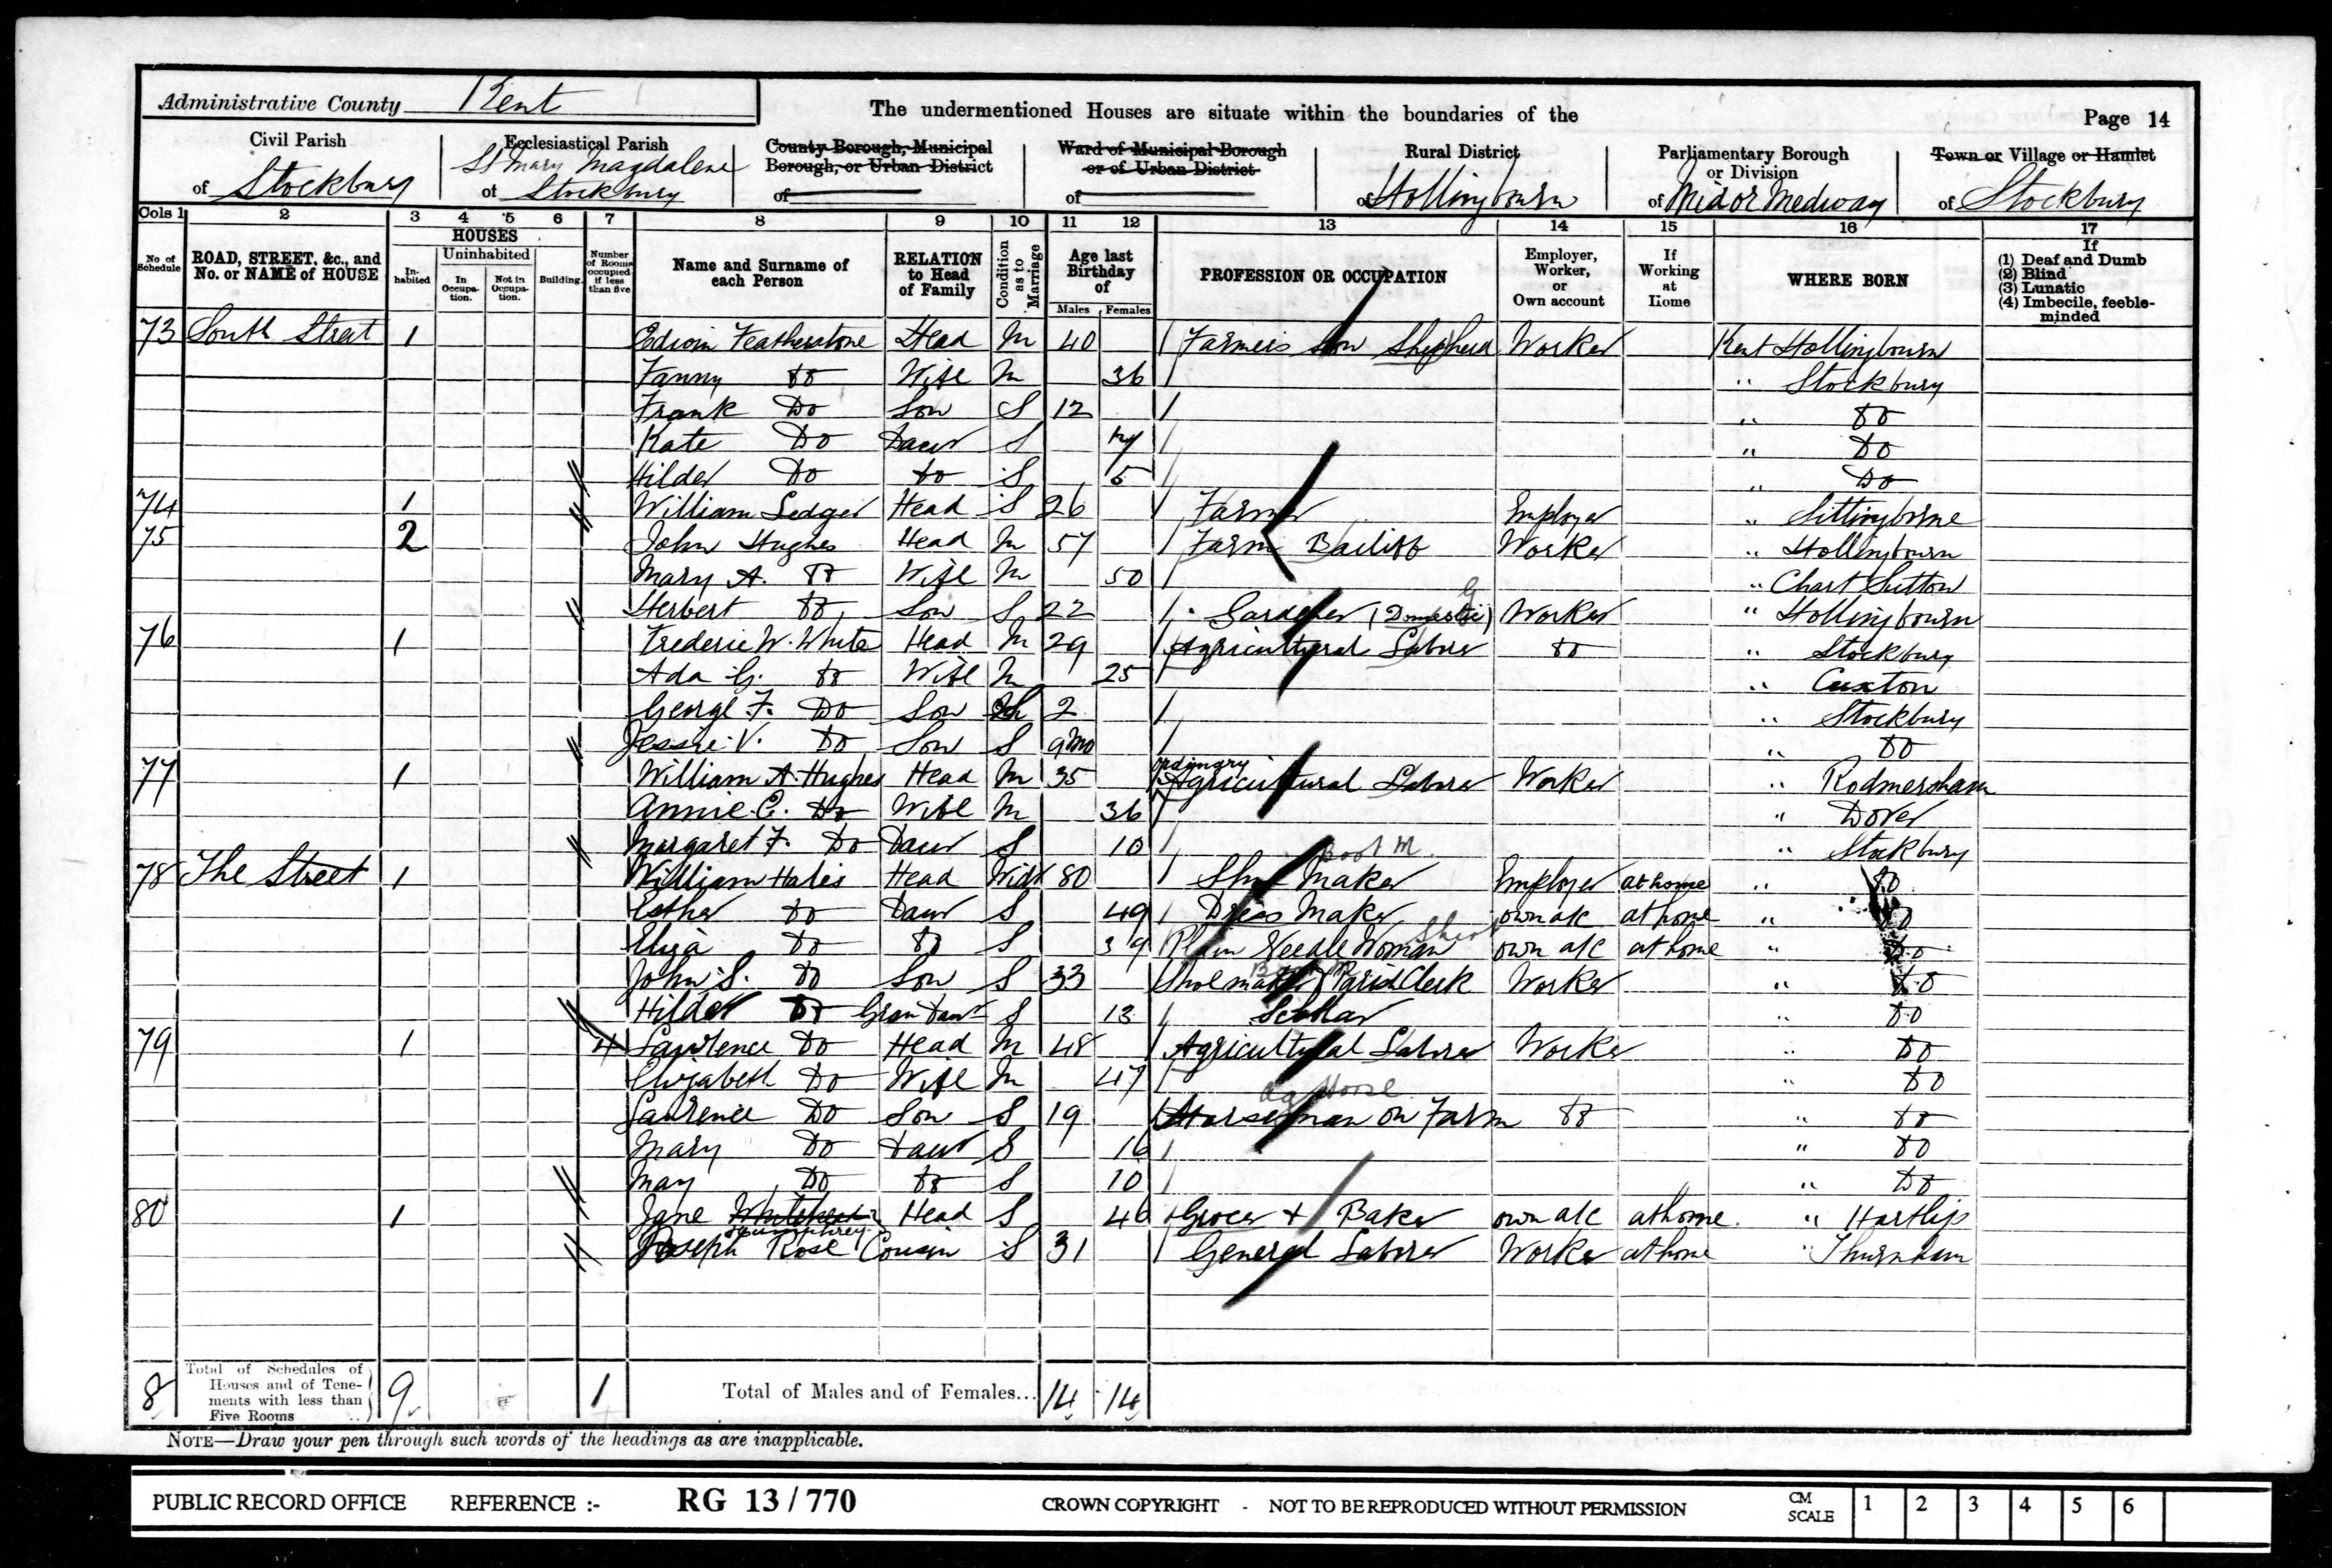 Administrative County Kent
The undermentioned Houses are situate within the boundaries of the
Page 14
Civil Parish of Stockbury
Ecclesiastical Parish of St Mary Magdalene Stockbury
County Borough, Municipal Borough, or Urban District of
Ward of Municipal Borough or of Urban District of
Rural District of Hollingbourn
Parliamentary Borough or Division of Mid or Medway
Town or Village or Hamlet of Stockbury
Cols 1 2 3 4 5 6 7 8 9 10 11 12 13 14 15 16 17
No of Schedule
ROAD, STREET, &c., and No. or NAME of HOUSE
HOUSES
Inhabited
Uninhabited
In Occupation.
Not in Occupation.
Building.
Number of Rooms occupied if less than five
Name and Surname of each Person
RELATION to Head of Family
Condition as to Marriage
Age last Birthday of
Males Females
PROFESSION OR OCCUPATION
Employer, Worker, or Own account
If Working at Home
WHERE BORN
If
(1) Deaf and Dumb
(2) Blind
(3) Lunatic
(4) Imbecile, feeble-minded
73 South Street 1 Edwin Featherstone Head M 40 Farmers Son Shepherd Worker Kent Hollingbourn
Fanny Do Wife M 36 " Stockbury
Frank Do Son S 12 " Do
Kate Do Daur S " Do
Hilder Do Do S 5 " Do
74 1 William Ledger Head S 26 Farmer Employer " Sittingborne
75 2 John Hughes Head M 57 Farm Bailiff Worker " Hollingbourn
Mary A. Do Wife M 50 " Chart Sutton
Herbert Do Son S 22 Gardener (Domestic) Worker " Hollingbourn
76 1 Frederic W. White Head M 29 Agricultural Laborer Do " Stockbury
Ada G. Do Wife M 25 " Cuxton
George F. Do Son S 2 " Stockbury
Jessie V. Do Son S 9mo " Do
77 1 William A. Hughes Head M 35 ordinary Agricultural Laborer Worker " Rodmersham
Annie C. Do Wife M 36 " Dover
Margaret F. Do Daur S 10 " Stockbury
78 The Street 1 William Hales Head Widr 80 Shoe Maker Boot M Employer at home " Do
Esther Do Daur S 49 Dress Maker own a/c at home " Do
Eliza Do Do S 39 Plain Needle Woman own a/c at home " Do
John S. Do Son S 33 Shoemaker Parish Clerk Worker " Do
Hilder Do Gran Daur S 13 Scholar " Do
79 1 4 Lawrence Do Head M 48 Agricultural Laborer Worker " Do
Elizabeth Do Wife M 47 " Do
Laurence Do Son S 19 Ag Horse Horseman on Farm Do " Do
Mary Do Daur S 16 " Do
May Do Do S 10 " Do
80 1 Jane Whitehead Humphrey Head S 46 Grocer + Baker own a/c at home " Hartlip
Joseph Rose Cousin S 31 General Laborer Worker at home " Thurnham
8 Total of Schedules of Houses and of Tenements with less than Five Rooms 9 1 Total of Males and of Females... 14 14
NOTE—Draw your pen through such words of the headings as are inapplicable.
PUBLIC RECORD OFFICE REFERENCE :- RG 13 / 770 CROWN COPYRIGHT - NOT TO BE REPRODUCED WITHOUT PERMISSION CM SCALE 1 2 3 4 5 6